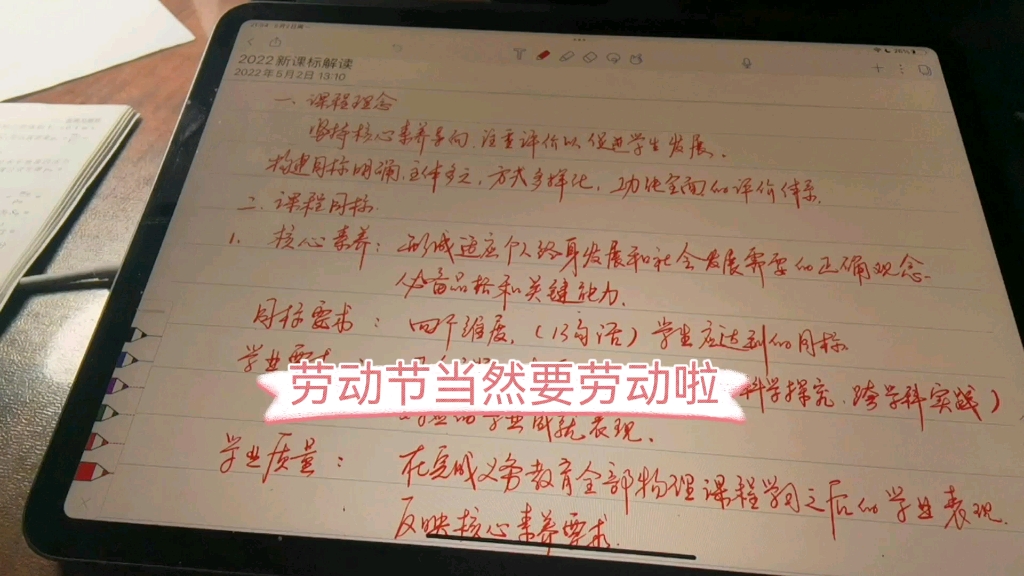 2022新课标解读
2022年5月2日 13:10
一、课程理念
坚持核心素养导向,注重评价以促进学生发展。
构建目标明确,主体多元,方式多样化,功能全面的评价体系。
二、课程目标
1. 核心素养:形成适应个人终身发展和社会发展需要的正确观念、
必备品格和关键能力。
目标要求:四个维度,(13句话)学生应达到的目标
学业要求:
科学探究、跨学科实践)
劳动节当然要劳动啦
学业成就表现。
学业质量:在完成义务教育全部物理课程学习之后的学业表现.
反映核心素养要求.